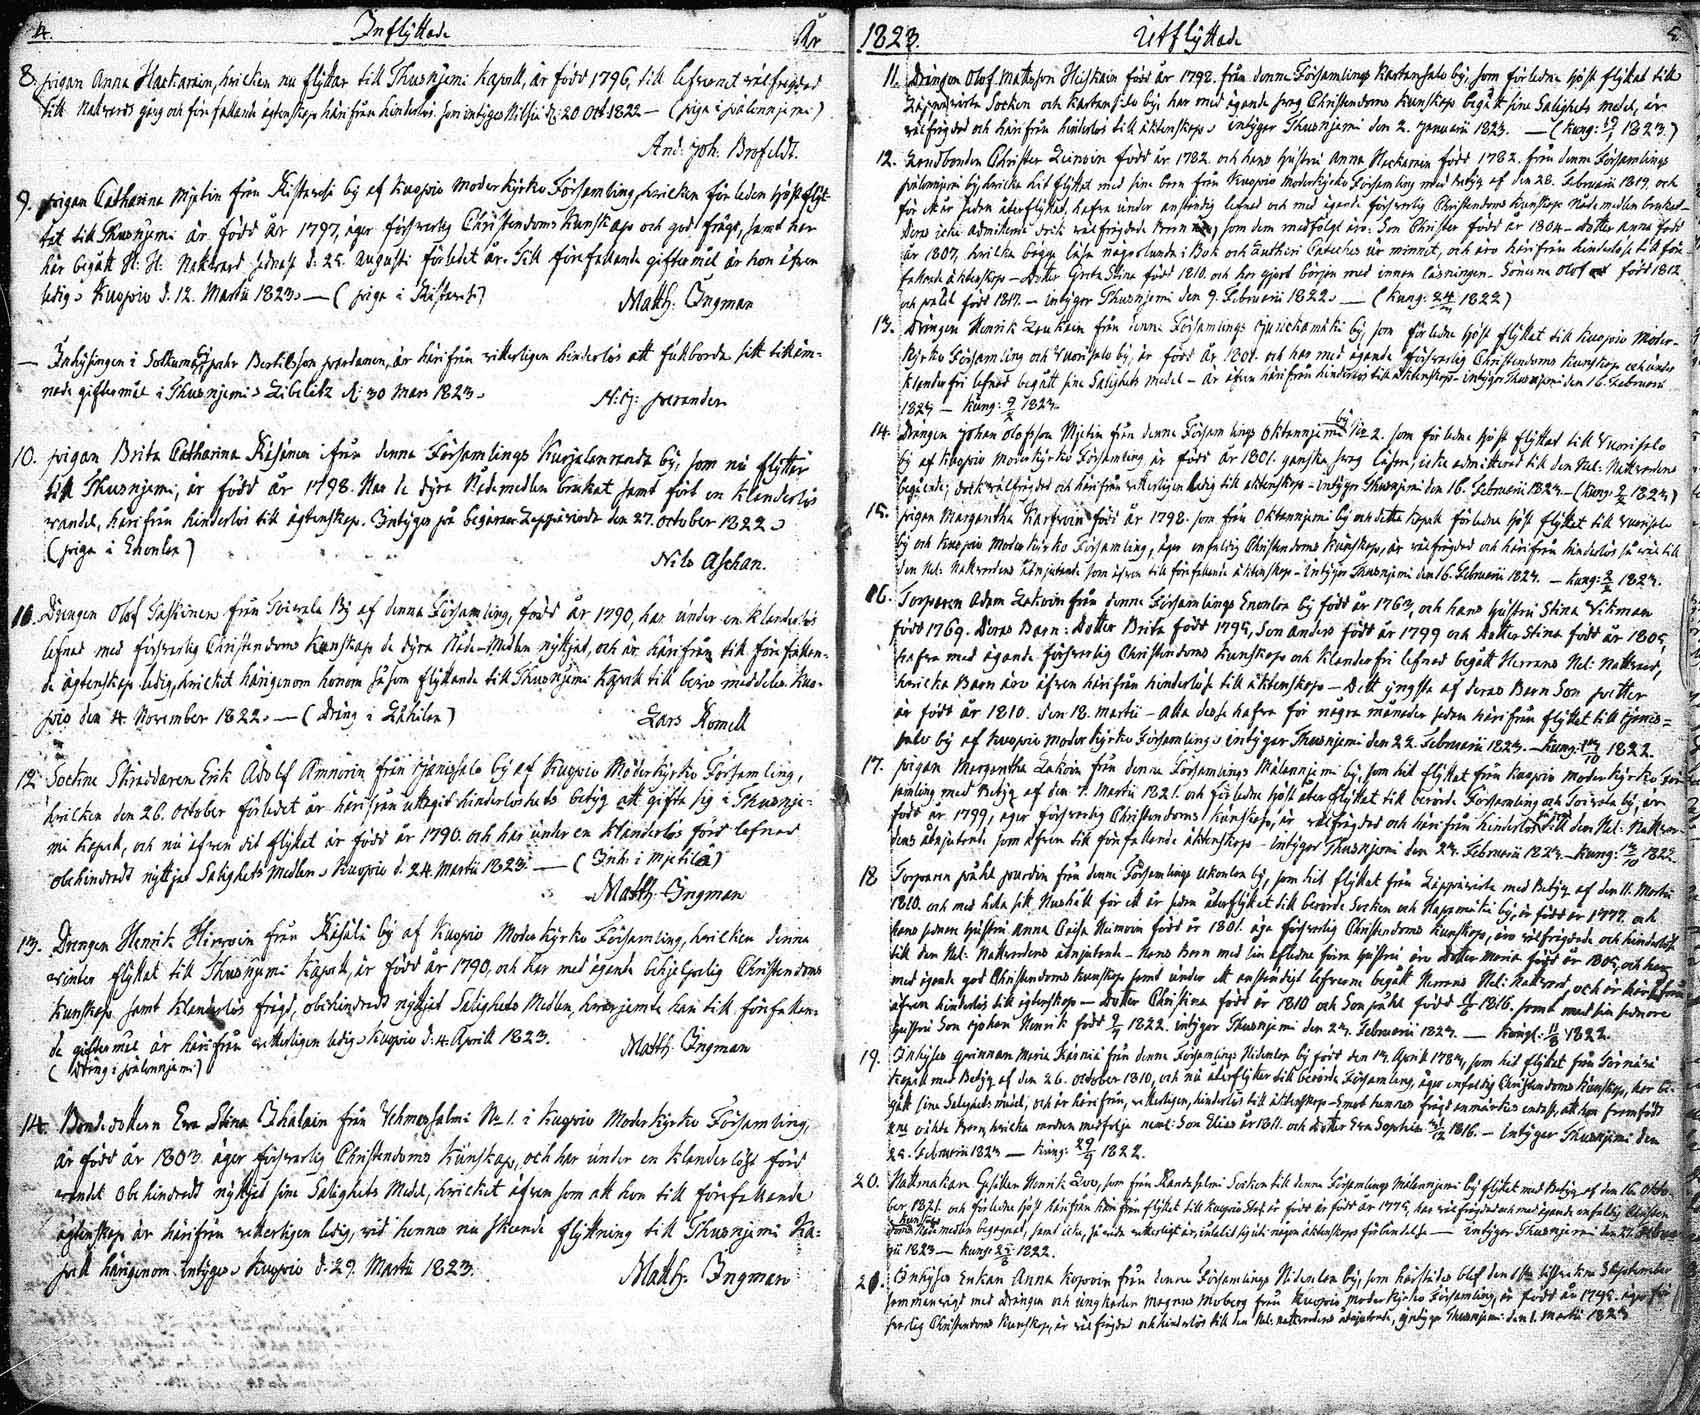 4. Inflyttade År
8. pigan Anna Hackarain, hvilken nu flyttar till Thusnjemi Kapell, är född 1796, till lefvernet välfrägdad
till Nattvards gång och före fallande ägtenskap härifrån hinderlös. som intygas Nilsiä d: 20 Oct 1822 — (piga i pälonnjemi)
And. Joh. Brofeldt.
9. pigan Catharina Mjetin från Ristaveisi by af Kuopio Moderkyrko Församling, hvilken förleden höst flyt-
tat till Thusnjemi är född år 1797, äger försvarlig Christendoms Kunskap och god frägd, samt har
här begått H: H: Nattvard sednast d: 25 Augusti förledit år. Till förefallande giftermål är hon äfven
ledig. Kuopio d. 12. Martii 1823. — (piga i Ristaveisi)
Matth. Ingman
— Inhysingen i Sotkuma by pehr Bertilsson pardanen, är härifrån vitterligen hinderlös att fullborda sitt tilläm-
nade giftermål i Thusnjemi. Libelitz d: 30 Mars 1823.
H: G: perander
10. pigan Brita Catharina Räsänen ifrån denna Församlings Kurjalanranda by, som nu flyttar
till Thusnjemi, är född år 1798. Har de dyra Nådemedlen brukat samt fört en klanderlös
vandel, härifrån hinderlös till ägtenskap. Intygas på begäran Leppävirta den 27. October 1822.
(piga i Enonlax)
Nils Aschan.
11. Drengen Olof Taskinen från Toivala By af denna Församling, född år 1790, har under en klanderlös
lefnad med försvarlig Christendoms Kunskap de dyra Nåde-Medlen nyttjat, och är härifrån till förefallan-
de ägtenskap ledig, hvilket härigenom honom såsom flyttande till Thusnjemi Kapell till bevis meddelas. Kuo-
pio den 4 November 1822. — (Dräng i Lähilax)
Lars Komell
12 Sockne Skräddaren Erik Adolf Amnorin från Jänissalo by af Kuopio Moderkyrko Församling,
hvilken den 26. October förledet år härifrån uttagit hinderlöshets betyg att gifta sig i Thusnje-
mi Kapell, och nu äfven dit flyttat är född år 1790. och har under en klanderlös förd lefnad
obehindradt nyttjat Salighets Medlen. Kuopio d. 24 Martii 1823. — (Inh: i mjetilä)
Matth. Ingman
13. Drengen Henrik Hirvoin från Räsälä by af Kuopio Moder Kyrko Församling, hvilken denna
vinter flyttat till Thusnjemi Kapell, är född år 1790, och har med ägande behjelpelig Christendoms
Kunskap samt klanderlös frägd, obehindradt nyttjat Salighets Medlen, hvarjemte han till förefallan-
de giftermål är härifrån vitterligen ledig. Kuopio d. 4. Aprill 1823.
(Dräng i pälonnjemi)
Matth. Ingman
14. Bondedottern Eva Stina Ihalain från Vehmersalmi No 1. i Kuopio Moderkyrko Församling,
är född år 1803. äger försvarlig Christendoms Kunskap, och har under en klanderlöst förd
vandel obehindradt nyttjat sine Salighets Medel, hvilket äfven som att hon till förefallande
ägtenskap är härifrån vitterligen ledig, vid hennes nu skeende flyttning till Thusnjemi Ka-
pell härigenom intygas. Kuopio d. 29. Martii 1823.
Matth. Ingman
1823. Utflyttade 5.
11. Drängen Olof Mattsson Heiskain född år 1792. från denna Församlings Kartansalo by, som förledne höst flyttat till
Leppävirta Socken och Kartansalo by, har med ägande svag Christendoms Kunskap begått sine Salighets medel, är
välfrägdad och härifrån hinderlös till äktenskap. intygar Thusnjemi den 2. Januarii 1823. — (Kung: 19/1 1823.)
12. Landbonden Christer Leinoin född år 1782. och hans hustru Anna Hackarain född 1782. från denna Församlings
pälonnjemi by hvilka hit flyttat med sine barn från Kuopio Moderkyrko Församling med Betyg af den 28. Februarii 1819. och
för ett år sedan återflyttat, hafva under anständig lefnad och med ägande försvarlig Christendoms Kunskap Nådemedlen brukat.
Deras icke admitterade dock välfrägdade Barn som dem medföljt äro: Son Christer född år 1804. Dotter Anna född
år 1807, hvilka begge läsa någorlunda i Bok och Lutheri Cateches ur minnet, och äro härifrån hinderlöse till före-
fallande äktenskap — Dotter Greta Stina född 1810. och har gjord början med innan läsningen. Sönerne Olof född 1812
och påhl född 1817. — intygar Thusnjemi den 9. Februarii 1822. — (Kung: 24/ 1822)
13. Drängen Henrik Leskein från denne Församlings Jurickamäki by, som förledne höst flyttat till Kuopio Moder-
kyrko Församling och Vuorisalo by, är född år 1801. och har med ägande försvarlig Christendoms Kunskap och under
klanderfri lefnad begått sine Salighets medel — är äfven härifrån hinderlös till äktenskap — intygar Thusnjemi den 16. Februarii
1823 — Kung: 9/2 1823.
14. Drängen Johan Olofsson Mjetin från denna Församlings Oktannjemi by No 2. som förledne höst flyttat till Vuorisalo
by af Kuopio Moderkyrko Församling är född år 1801. ganska svag läsare, icke admitterad till den Hel: Nattvardens
begående; dock välfrägdad och härifrån vitterligen ledig till äktenskap. — intygar Thusnjemi den 16. Februarii 1823 — (Kung: 9/2 1823)
15. pigan Margaretha Kartvoin född år 1798. som från Oktannjemi by och detta Kapell förledne höst flyttat till Vuorisalo
by och Kuopio Moderkyrko Församling, äger enfaldig Christendoms Kunskap, är välfrägdad och härifrån hinderlös så väl till
den Hel: Nattvardens åtnjutande som äfven till förefallande äktenskap — intygar Thusnjemi den 16. Februarii 1823. — Kung: 9/2 1823.
16. Torparen Adam Lakoin från denne Församlings Enonlax by född år 1763, och hans hustru Stina Vikman
född 1769. Deras Barn: Dotter Brita född 1795, Son anders född år 1799 och Dotter Stina född år 1805,
hafva med ägande försvarlig Christendoms Kunskap och klanderfri lefnad begått Herrans Hel: Nattvard,
hvilka Barn äro äfven härifrån hinderlöse till äktenskap — Dett yngsta af deras Barn Son petter
är född år 1810. den 18. martii — alla desse hafva för någre månader sedan härifrån flyttat till Jänis-
salo by af Kuopio Moderkyrko Församling. intygar Thusnjemi den 22. Februarii 1823. — Kung: /10 1822.
17. pigan Margaretha Lakoin från denna Församlings Mälannjemi by, som hit flyttat från Kuopio moder kyrko För-
samling med Betyg af den 7. Martii 1821. och förledne höst återflyttat till berörde Församling och Toivala by, är
född år 1799, äger försvarlig Christendoms Kunskap, är välfrägdad och härifrån hinderlös till den Hel: Nattvar-
dens åtnjutande som äfven till förefallande äktenskap — intygar Thusnjemi den 23. Februarii 1823. — Kung: 13/10 1822.
18 Torparen påhl pardin från denne Församlings Ukonlax by, som hit flyttat från Leppävirta med Betyg af den 11. Martii
1810. och med hela sitt Hushåll för ett år sedan återflyttat till berörde Socken och Happamäki by, är född år 1777. och
hans sednare Hustru Anna Caisa Heinoin född år 1801. äga försvarlig Christendoms Kunskap, äro välfrägdade och hinderlöse
till den Hel: Nattvardens åtnjutande. Hans Barn med sin aflidne förra Hustru äro Dotter Maria född år 1805, och har
med ägande god Christendoms Kunskap samt under ett anständigt lefverne begått Herrans Hel: Nattvard, och är härifrån
äfven hinderlös till ägtenskap — Dotter Christina född år 1810 och Son påhl född 1816. samt med sin sednare
Hustru Son Johan Henrik född 9/ 1822. intygar Thusnjemi den 23. Februarii 1823. — Kungl: 11/8 1822.
19. Inhyses qvinnan Maria Räsniä från denna Församlings Hidenlax by född den Aprill 1783, som hit flyttat från Tornäsi
Kapell med Betyg af den 26. October 1810, och nu återflyttar till berörde Församling, äger enfaldig Christendoms Kunskap, har be-
gått sine Salighets medel, och är härifrån, vitterligen, hinderlös till äktenskap — emot hennes frägd anmärkes endast, att hon framfödt
2ne oäkta Barn, hvilka modren medfölja neml: Son Elias år 1811. och Dotter Eva Sophia /12 1816. — intygar Thusnjemi den
25. Februarii 1823 — Kung: 29/9 1822.
20. Hattmakare Gesällen Henrik Loo, som från Randasalmi Socken till denna Församlings Mälannjemi by flyttat med Betyg af den 16. Octo-
ber 1821. och förledne höst härifrån flyttat till Kuopio Stad är född är född år 1775, har välfrägdad och med ägande enfaldig Christen-
doms Kunskap Nådemedlen begagnat, samt icke, så vida vitterligt är, inlåtit sig uti någon äktenskaps förbindelse — intygar Thusnjemi den 27. Februa-
rii 1823 — Kung: 1822.
21. Inhyses Enkan Anna Kopoin från denna Församlings Hidenlax by, som härstädes blef den 6te sistvekne September
sammanvigd med Drängen och ungkarlen Magnus Moberg från Kuopio moderkyrko Församling, är född år 1795. äger för-
svarlig Christendoms Kunskap, är välfrägdad och hinderlös till den Hel: Nattvardens åtnjutande, intygar Thusnjemi den 1. Martii 1823